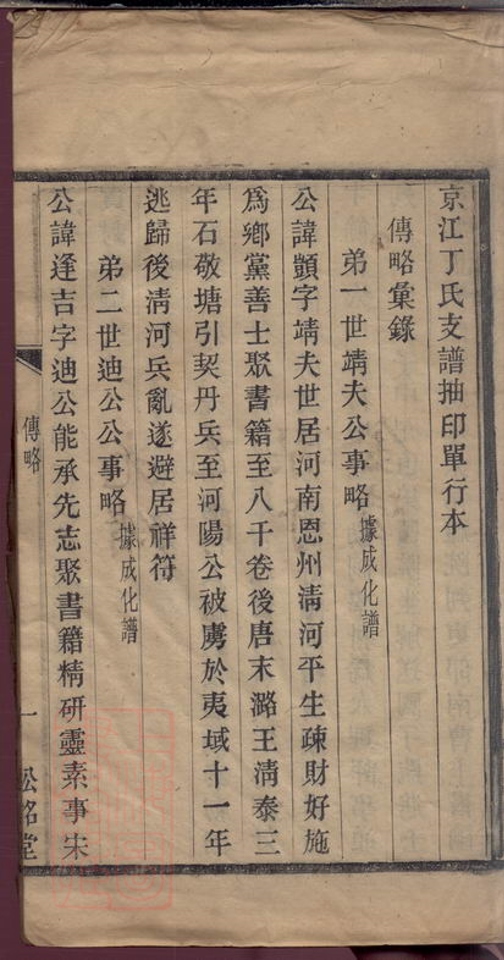 京江丁氏支譜抽印單行本
傳略彙錄
弟一世靖夫公事略據成化譜
公諱顗字靖夫世居河南恩州淸河平生疎財好施
爲鄉黨善士聚書籍至八千卷後唐末潞王淸泰三
年石敬塘引契丹兵至河陽公被虜於夷域十一年
逃歸後淸河兵亂遂避居祥符
弟二世迪公公事略據成化譜
公諱逢吉字迪公能承先志聚書籍精研靈素事宋
傳略
一
松銘堂